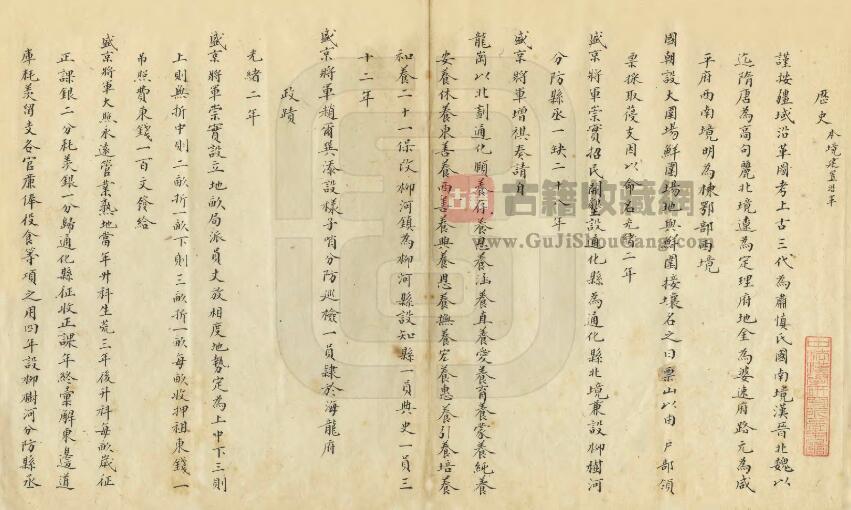 歷史 本境建置沿革
謹按疆域沿革國考上古三代為肅慎氏國南境漢晉北魏以
迄隋唐為高句麗北境遼為定理府地金為婆速府路元為咸
平府西南境明為棟鄂部西境
國朝設大圍場鮮圍場地與鮮圍接壤名之曰票山以由戶部領
票採取葠支因以命名光緒二年
盛京將軍崇實招民開墾設通化縣為通化縣北境兼設柳樹河
分防縣丞一缺二十八年
盛京將軍增祺奏請自
龍崗以北劃通化頤養存養恩養涵養直養愛養育養蒙養純養
安養休養東善養西善養興養思養撫養宏養惠養引養培養
和養二十一保改柳河鎮為柳河縣設知縣一員典史一員三
十二年
盛京將軍趙爾巽添設樣子哨分防巡檢一員隸於海龍府
政蹟
光緒二年
盛京將軍崇實設立地畝局派員丈放相度地勢定為上中下三則
上則無折中則二畝折一畝下則三畝折一畝每畝收押租東錢一
吊照費東錢一百文發給
盛京將軍大照永遠管業熟地當年升科生荒三年後升科每畝歲征
正課銀二分耗羨銀一分歸通化縣征收正課年終彙解東邊道
庫耗羨留支各官廉俸役食等項之用四年設柳樹河分防縣丞
古籍
古籍收藏網
www.GuJiShouCang.com